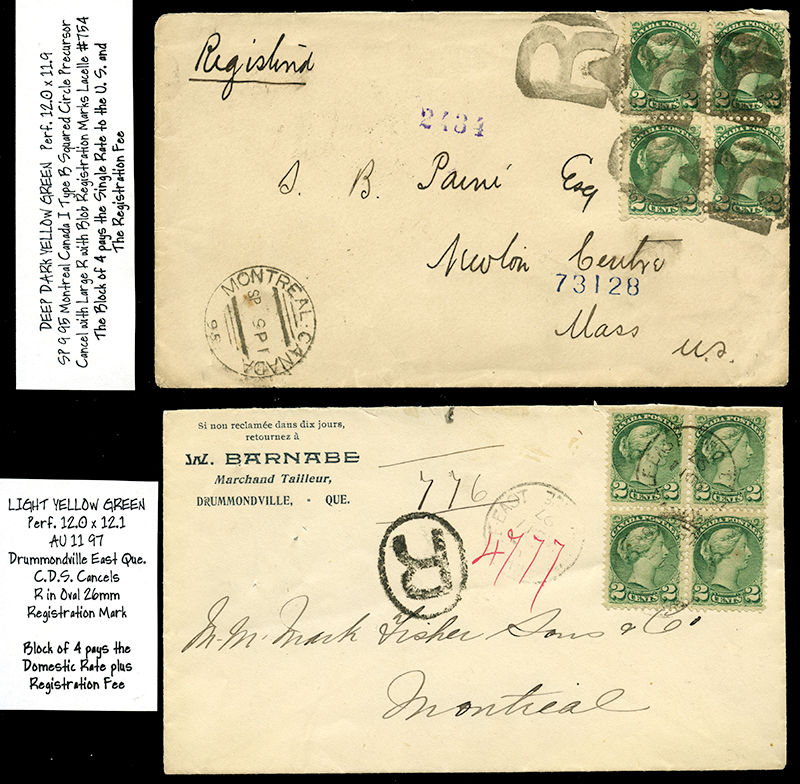 DEEP DARK YELLOW GREEN Perf. 12.0 x 11.9
SP 9 95 Montreal Canada I Type B Squared Circle Precursor
Cancel with Large R with Blob Registration Marks Lacelle #754
The Block of 4 pays the Single Rate to the U. S. and
The Registration Fee
Registered
R
2484
CANADA POSTAGE
2 CENTS 2
CANADA POSTAGE
2 CENTS 2
CANADA POSTAGE
2 CENTS 2
CANADA POSTAGE
2 CENTS 2
S. B. Paine Esq
Newton Centre
73128
Mass
U.S.
MONTREAL·CANADA
SP
95
LIGHT YELLOW GREEN
Perf. 12.0 x 12.1
AU 11 97
Drummondville East Que.
C.D.S. Cancels
R in Oval 26mm
Registration Mark
Block of 4 pays the
Domestic Rate plus
Registration Fee
Si non reclamée dans dix jours,
retournez à
W. BARNABE
Marchand Tailleur,
DRUMMONDVILLE, - QUE.
776
R
4777
EAST
97
CANADA POSTAGE
2 CENTS 2
CANADA POSTAGE
2 CENTS 2
CANADA POSTAGE
2 CENTS 2
CANADA POSTAGE
2 CENTS 2
M. M. Mark Fisher Sons & Co
Montreal